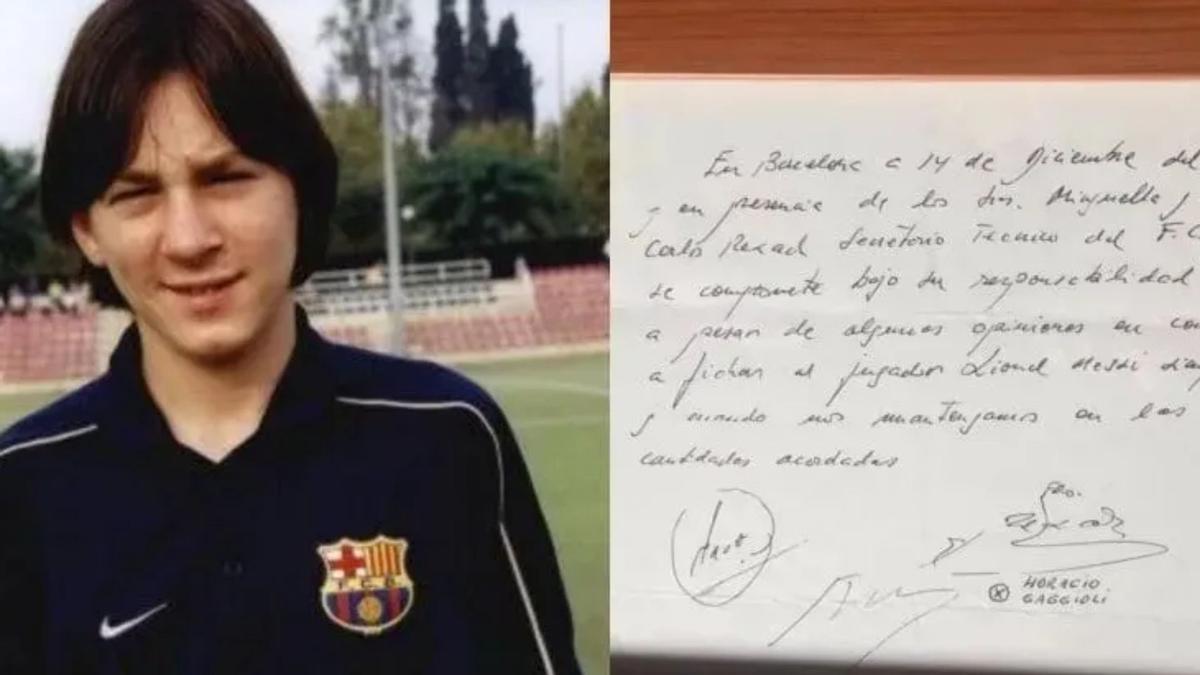 F C B
En Barcelona a 14 de Diciembre del
y en presencia de los Srs. Minguella y
Carlos Rexach Secretario Técnico del F.C
se compromete bajo su responsabilidad
a pesar de algunas opiniones en con
a fichar al jugador Lionel Messi siem
y cuando nos mantengamos en las
cantidades acordadas
HORACIO
GAGGIOLI